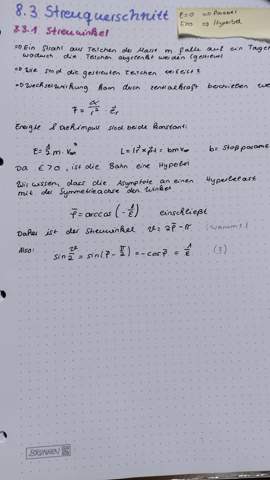 8.3 Streuquerschnitt
ε=0 ⇒ Parabel
ε>0 ⇒ Hyperbel
8.3.1 Streuwinkel
⇒ Ein Strahl aus Teilchen der Masse m falle auf ein
wodurch die Teilchen abgelenkt werden (gestreut
⇒ Wie sind die gestreuten Teilchen verteilt?
⇒ Wechselwirkung kann durch Zentralkraft beschrieben
F = α/r² · e_r
Energie & Drehimpuls sind beide konstant:
E = 1/2 m · v∞² L = |r × p| = b m v∞ b = Stoßparame
Da E > 0, ist die Bahn eine Hypebel
Wir wissen, dass die Asymptote an einen Hyperbelast
mit der Symmetrieachse den Winkel
φ = arccos(-1/ε) einschließt
Daher ist der Streuwinkel ϑ = 2φ - π (warum?)
Also:
sin ϑ/2 = sin(φ - π/2) = -cos φ = 1/ε
BRUNNEN